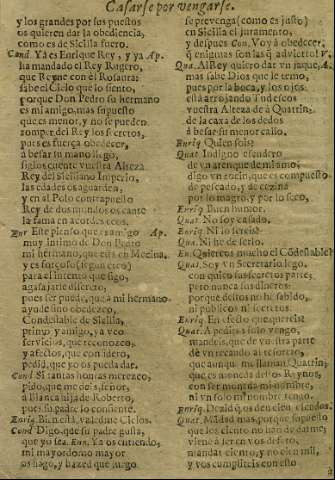 Casarse por vengarse.
y los grandes por sus puestos
os quieren dar la obediencia,
como es de Sicilia fuero.
Cond. Ya es Enrique Rey, y ya Ap.
ha mandado el Rey Rugero,
que Reyne con èl Rosaura:
sabe el Cielo que lo siento,
porque Don Pedro su hermano
es mi amigo, mas supuesto
que es menor, y no se pueden
romper del Rey los secretos,
pues es fuerça obedecer,
à besar tu mano llego,
siglos cuente vuestra Alteza
Rey del Siciliano Imperio,
las edades os aguarden,
y en el Polo contrapuesto
Rey de dos mundos os cante
la fama en acordes ecos.
Enr Este pienso que es amigo Ap.
muy intimo de Don Pedro
mi hermano, que està en Mecina,
y es forçoso (segun creo)
para el intento que sigo,
agasajarle discreto,
pues ser puede, que à mi hermano
ayude si no obedezco.
Condestable de Sicilia,
primo, y amigo, ya veo
servicios, que reconozco,
y afectos, que considero,
pedid, que yo os pueda dar.
Cond Si tantas honras merezco,
pido, que me deis, señor,
à Blanca hija de Roberto,
pues su padre lo consiente.
Enriq. Bien està, valedme Cielos.
Cond Digo, que su padre gusta,
que yo sea. Enr. Ya os entiendo,
mi mayordomo mayor
os hago, y hazed que luego
se prevenga (como es justo)
en Sicilia el juramento,
y despues Con. Voy à obedecer;
què enigmas seràn las que advierto! V.
Qua. Al Rey quiero dar vn jaque, A
mas sabe Dios que le temo,
pues por la boca, y los ojos
està arrojando Tudescos
vuestra Alteza de à Quatrin,
de la caxa de los dedos
à besar su menor callo.
Enriq Quien sois?
Quat Indigno engendro
de vn arenque mi amo;
digo vn rocin, que es compuesto
de pescado, y de cezina
por lo magro, y por lo seco,
Enriq Buen humor.
Quat. No soy casado,
Enriq. Ni lo sereis?
Qua. Ni he de serlo.
En. Quiereos mucho el Códestable?
Qua. Soy yn Secretario lego,
con quien sus secretos parte;
pero nunca sus dineros:
porque destos no he sabido,
ni publicos ni secretos.
Enriq. En efecto que quereis?
Quat. A pediros solo vengo,
mandeis, que de vuestra parte
dè vn recaudo al tesorero,
que aunque me llaman Quatrin,
que es moneda destos Reynos,
con ser moneda mi nombre,
ni vn solo mi nombre tengo.
Enriq. Dezid q os den cien escudos.
Quat. Mas dos mas, porque supuesto
que los ciento no han de darme,
viene à ser en vos defeto,
mandar ciento, y no cien mil,
y vos cumplireis con esto